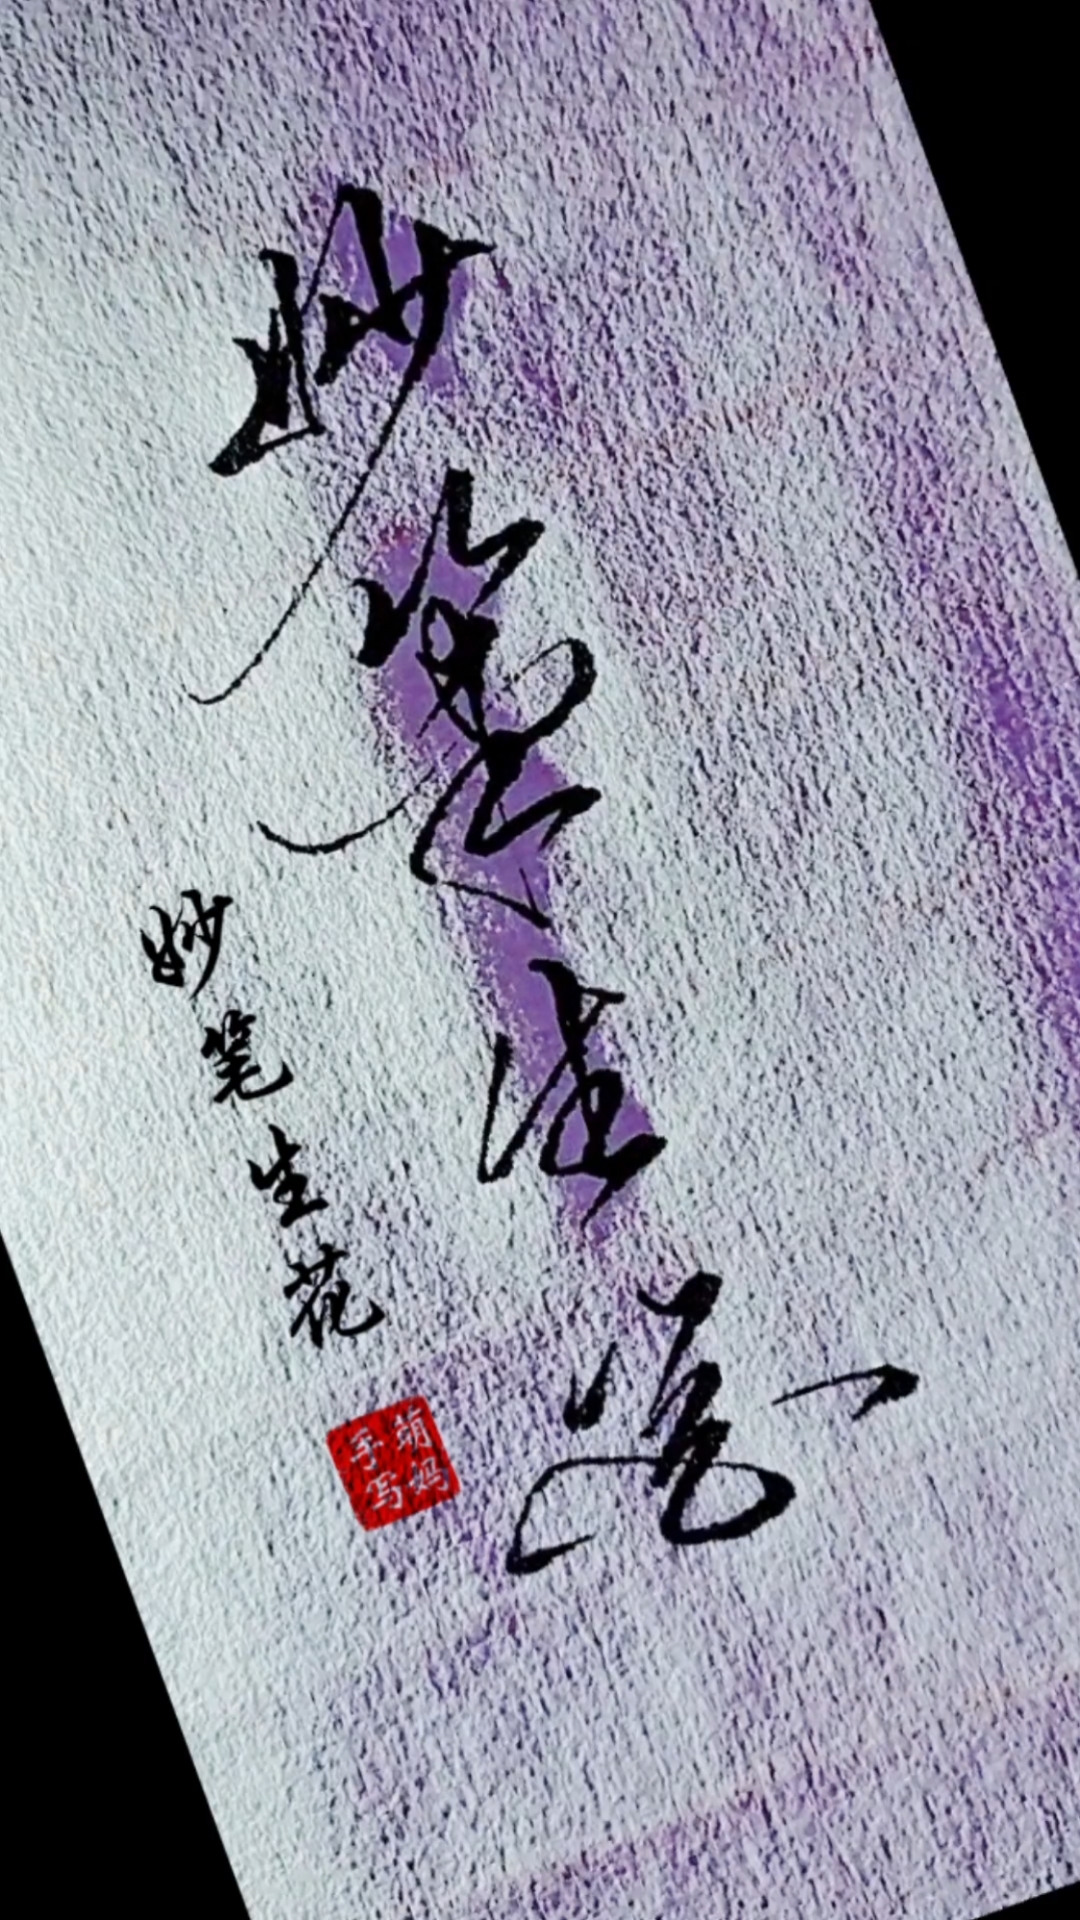 妙笔生花
妙笔生花
萌妈
手写